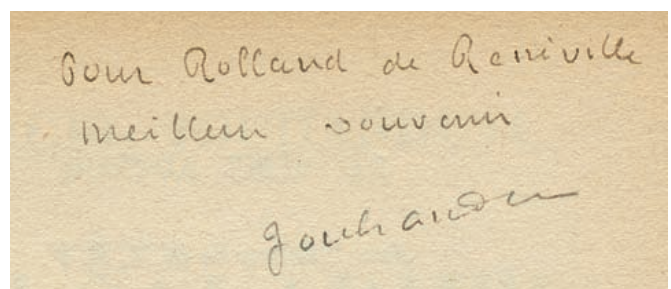 Pour Rolland de Renéville
meilleur souvenir
Jouhandeau